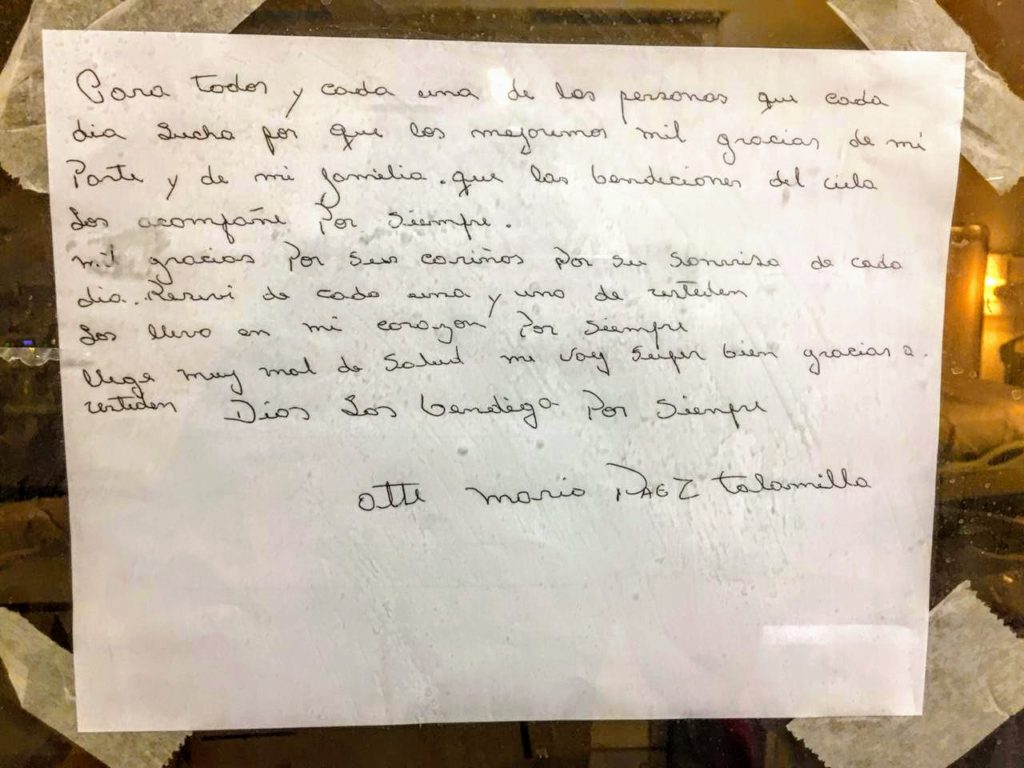 Para todos y cada una de las personas que cada
dia lucha por que los mejoremos mil gracias de mi
Parte y de mi familia. que las bendiciones del cielo
Los acompañe Por siempre.
mil gracias Por sus cariños Por su sonrisa de cada
dia. Recivi de cada una y uno de ustedes
Los llevo en mi corazon Por siempre
llege muy mal de salud me voy super bien gracias a.
ustedes Dios Los bendiga Por siempre
atte mario PAEZ talamilla